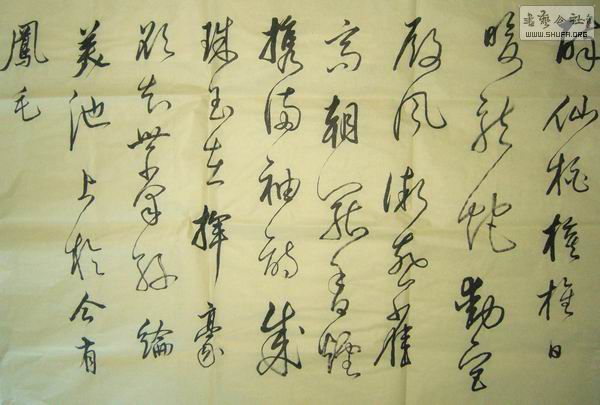 醉仙桃旌旗日
暖龍蛇動宮
殿风微燕雀
高朝罷香煙
携滿袖詩成
珠玉在揮豪
欲知世掌絲綸
美池上於今有
鳳毛
书藝公社
WWW.SHUFA.ORG